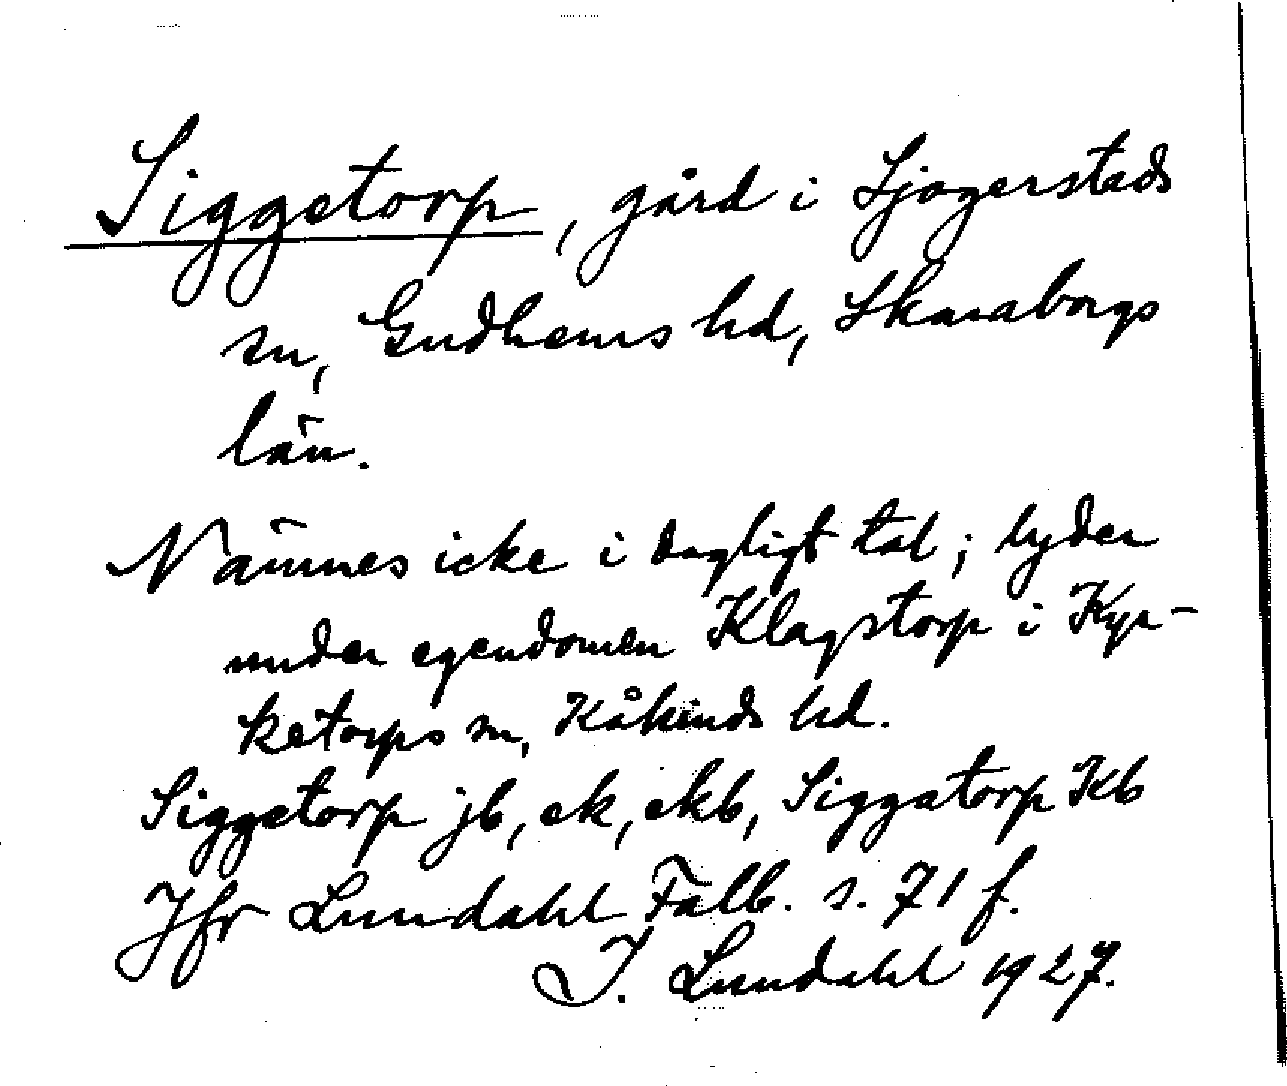 Siggetorp, gård i Sjogerstads
sn, Gudhems hd, Skaraborgs
län.
Nämnes icke i dagligt tal; lyder
under egendomen Klagstorp i Kyr-
ketorps sn, Kåkinds hd.
Siggetorp jb, ek, ekb, Siggatorp Kb
Jfr Lundahl Falb. s. 71 f.
I. Lundahl 1927.